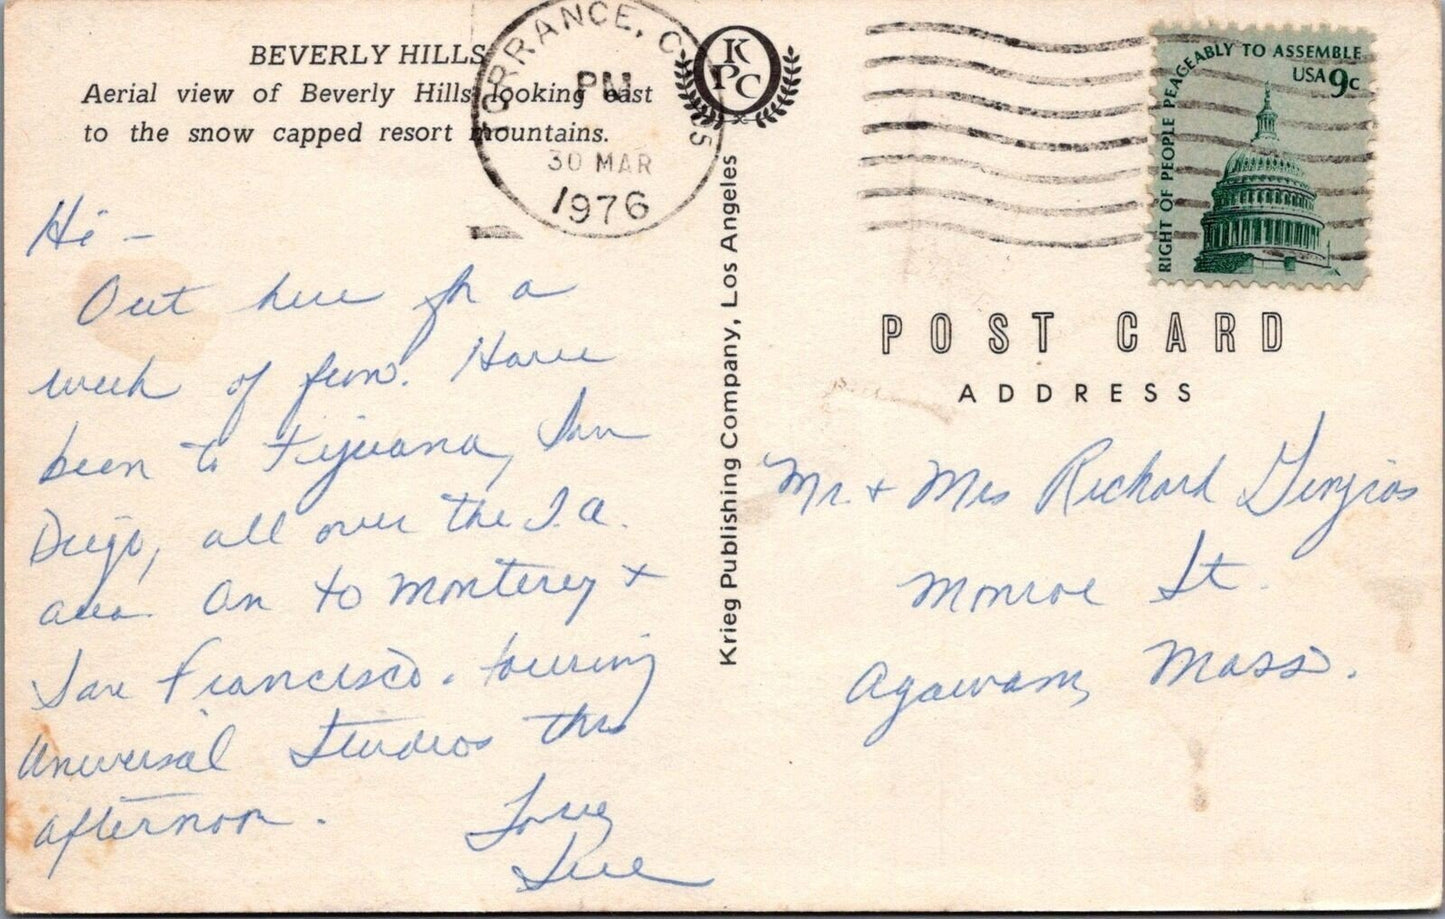 BEVERLY HILLS
Aerial view of Beverly Hills looking east
to the snow capped resort mountains.
TORRANCE, C
PM
30 MAR
1976
KPC
RIGHT OF PEOPLE PEACEABLY TO ASSEMBLE
USA 9c
Krieg Publishing Company, Los Angeles
POST CARD
ADDRESS
Hi -
Out here for a
week of fun. Have
been to Tijuana, San
Diego, all over the L.A.
area. On to Monterey +
San Francisco. touring
Universal Studios this
afternoon.
Love
Sue
Mr. + Mrs Richard
Monroe St.
Agawam, Mass.